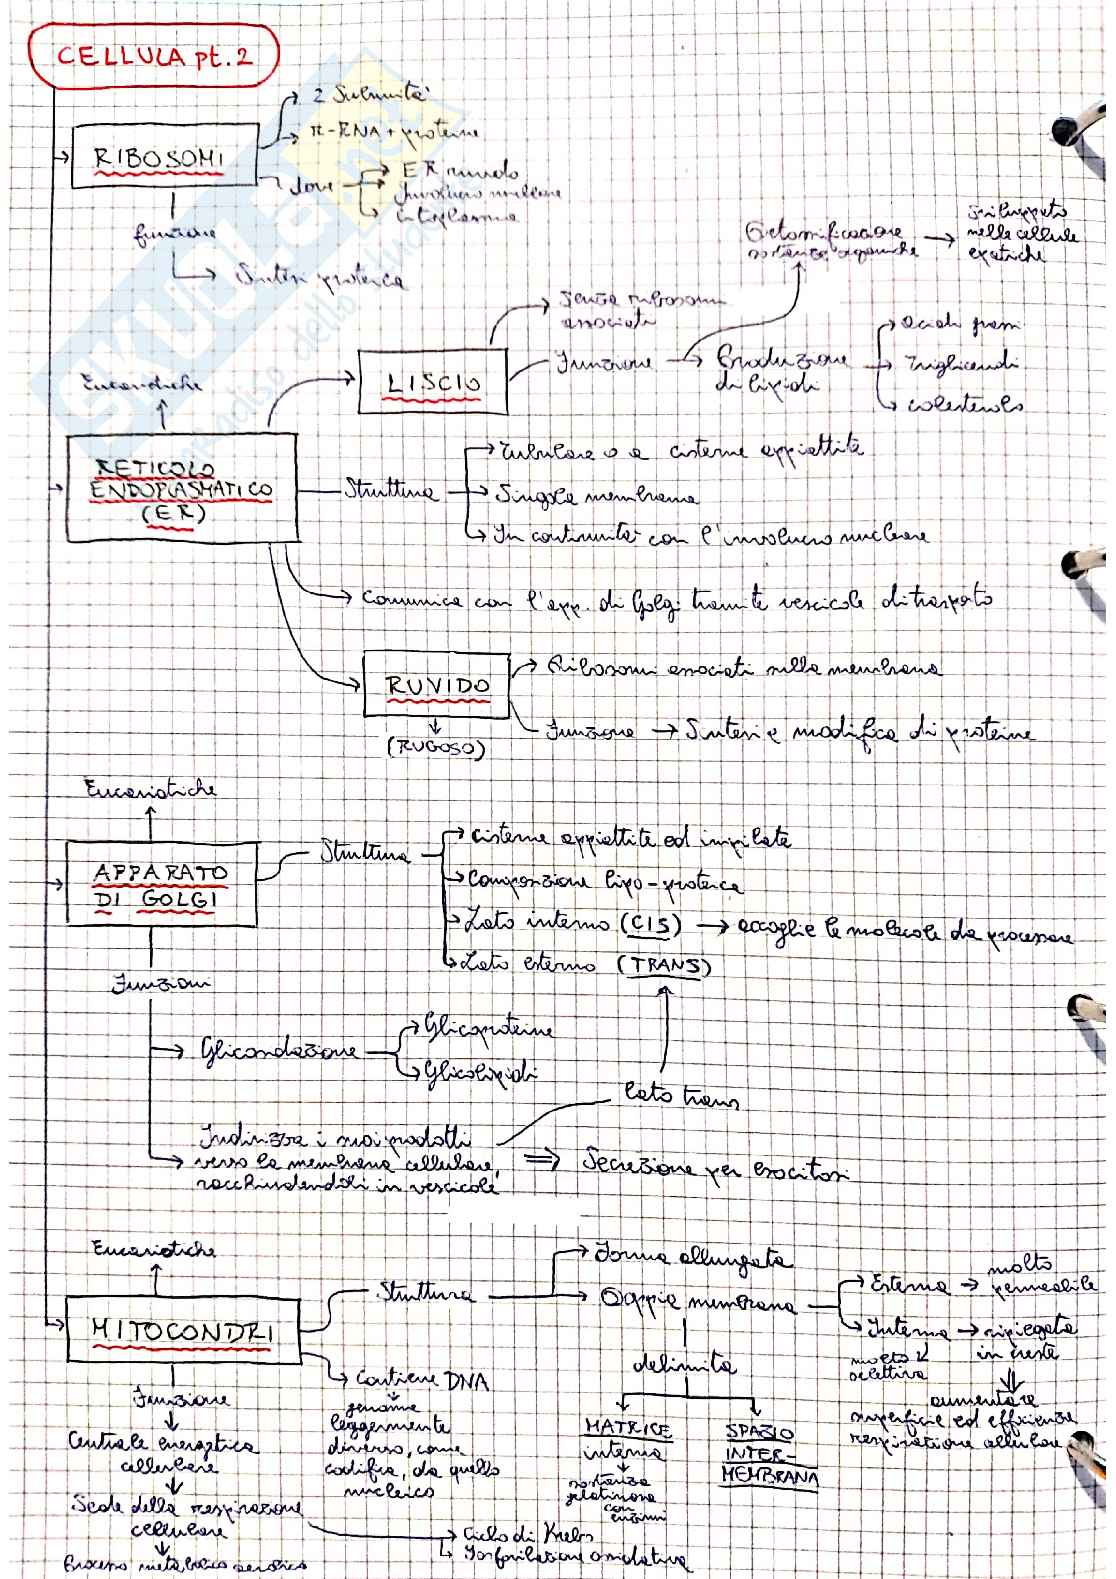 CELLULA pt. 2
2 Subunità
r-RNA + proteine
RIBOSOMI
dove
ER ruvido
Involucro nucleare
Citoplasma
funzione
Sintesi proteica
Detossificazione
sostanze organiche
sviluppato
nelle cellule
epatiche
Senza ribosomi
associati
LISCIO
Funzione
Produzione
di lipidi
Acidi grassi
Trigliceridi
Colesterolo
Eucariotiche
RETICOLO
ENDOPLASMATICO
(ER)
Struttura
Tubulare o a cisterne appiattite
Singola membrana
In continuità con l'involucro nucleare
Comunica con l'app. di Golgi tramite vescicole di trasporto
RUVIDO
(RUGOSO)
Ribosomi associati sulla membrana
Funzione
Sintesi e modifica di proteine
Eucariotiche
APPARATO
DI GOLGI
Struttura
Cisterne appiattite ed impilate
Composizione lipo-proteica
Lato interno (CIS)
accoglie le molecole da processare
Lato esterno (TRANS)
Funzioni
Glicosidazione
Glicoproteine
Glicolipidi
lato trans
Indirizza i suoi prodotti
verso la membrana cellulare,
racchiudendoli in vescicole
Secrezione per esocitosi
Eucariotiche
MITOCONDRI
Struttura
Forma allungata
Doppia membrana
Esterna
molto
permeabile
Interna
molto
selettiva
ripiegata
in creste
aumentare
superficie ed efficienza
respirazione cellulare
delimita
MATRICE
interna
sostanza
gelatinosa
con
enzimi
SPAZIO
INTER-
MEMBRANA
Contiene DNA
genoma
leggermente
diverso, come
codifica, da quello
nucleico
Funzione
Centrale energetica
cellulare
Sede della respirazione
cellulare
Processo metabolico aerobico
Ciclo di Krebs
Fosforilazione ossidativa